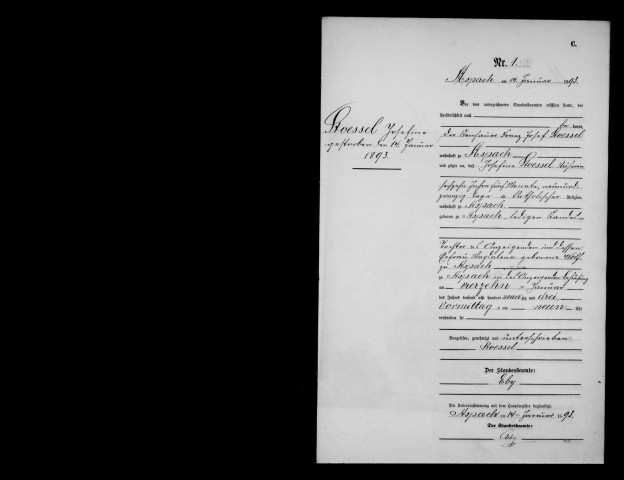 C.
Nr. 1.
Aspach am 14. Januar 1893.
Stoessel Josefine
gestorben den 14. Januar
1893.
Vor dem unterzeichneten Standesbeamten erschien heute, der
Persönlichkeit nach
bekannt,
der Franz Josef Stoessel
wohnhaft zu Aspach
und zeigte an, daß Josefine Stoessel
sechzehn Jahre fünf Monate, neunund
zwanzig Tage alt, katholischer Religion,
wohnhaft zu Aspach
geboren zu Aspach, ledigen Standes
Tochter des Anzeigenden und dessen
Ehefrau Magdalena geborene
zu Aspach
zu Aspach in des Anzeigenden Behausung
am vierzehn ten Januar
des Jahres tausend acht hundert neunzig und drei
Vormittags um neun Uhr
verstorben sei.
Vorgelesen, genehmigt und unterschrieben
Stoessel
Der Standesbeamte:
Eby
Die Uebereinstimmung mit dem Hauptregister beglaubigt.
Aspach am 14. Januar 1893.
Der Standesbeamte:
Eby